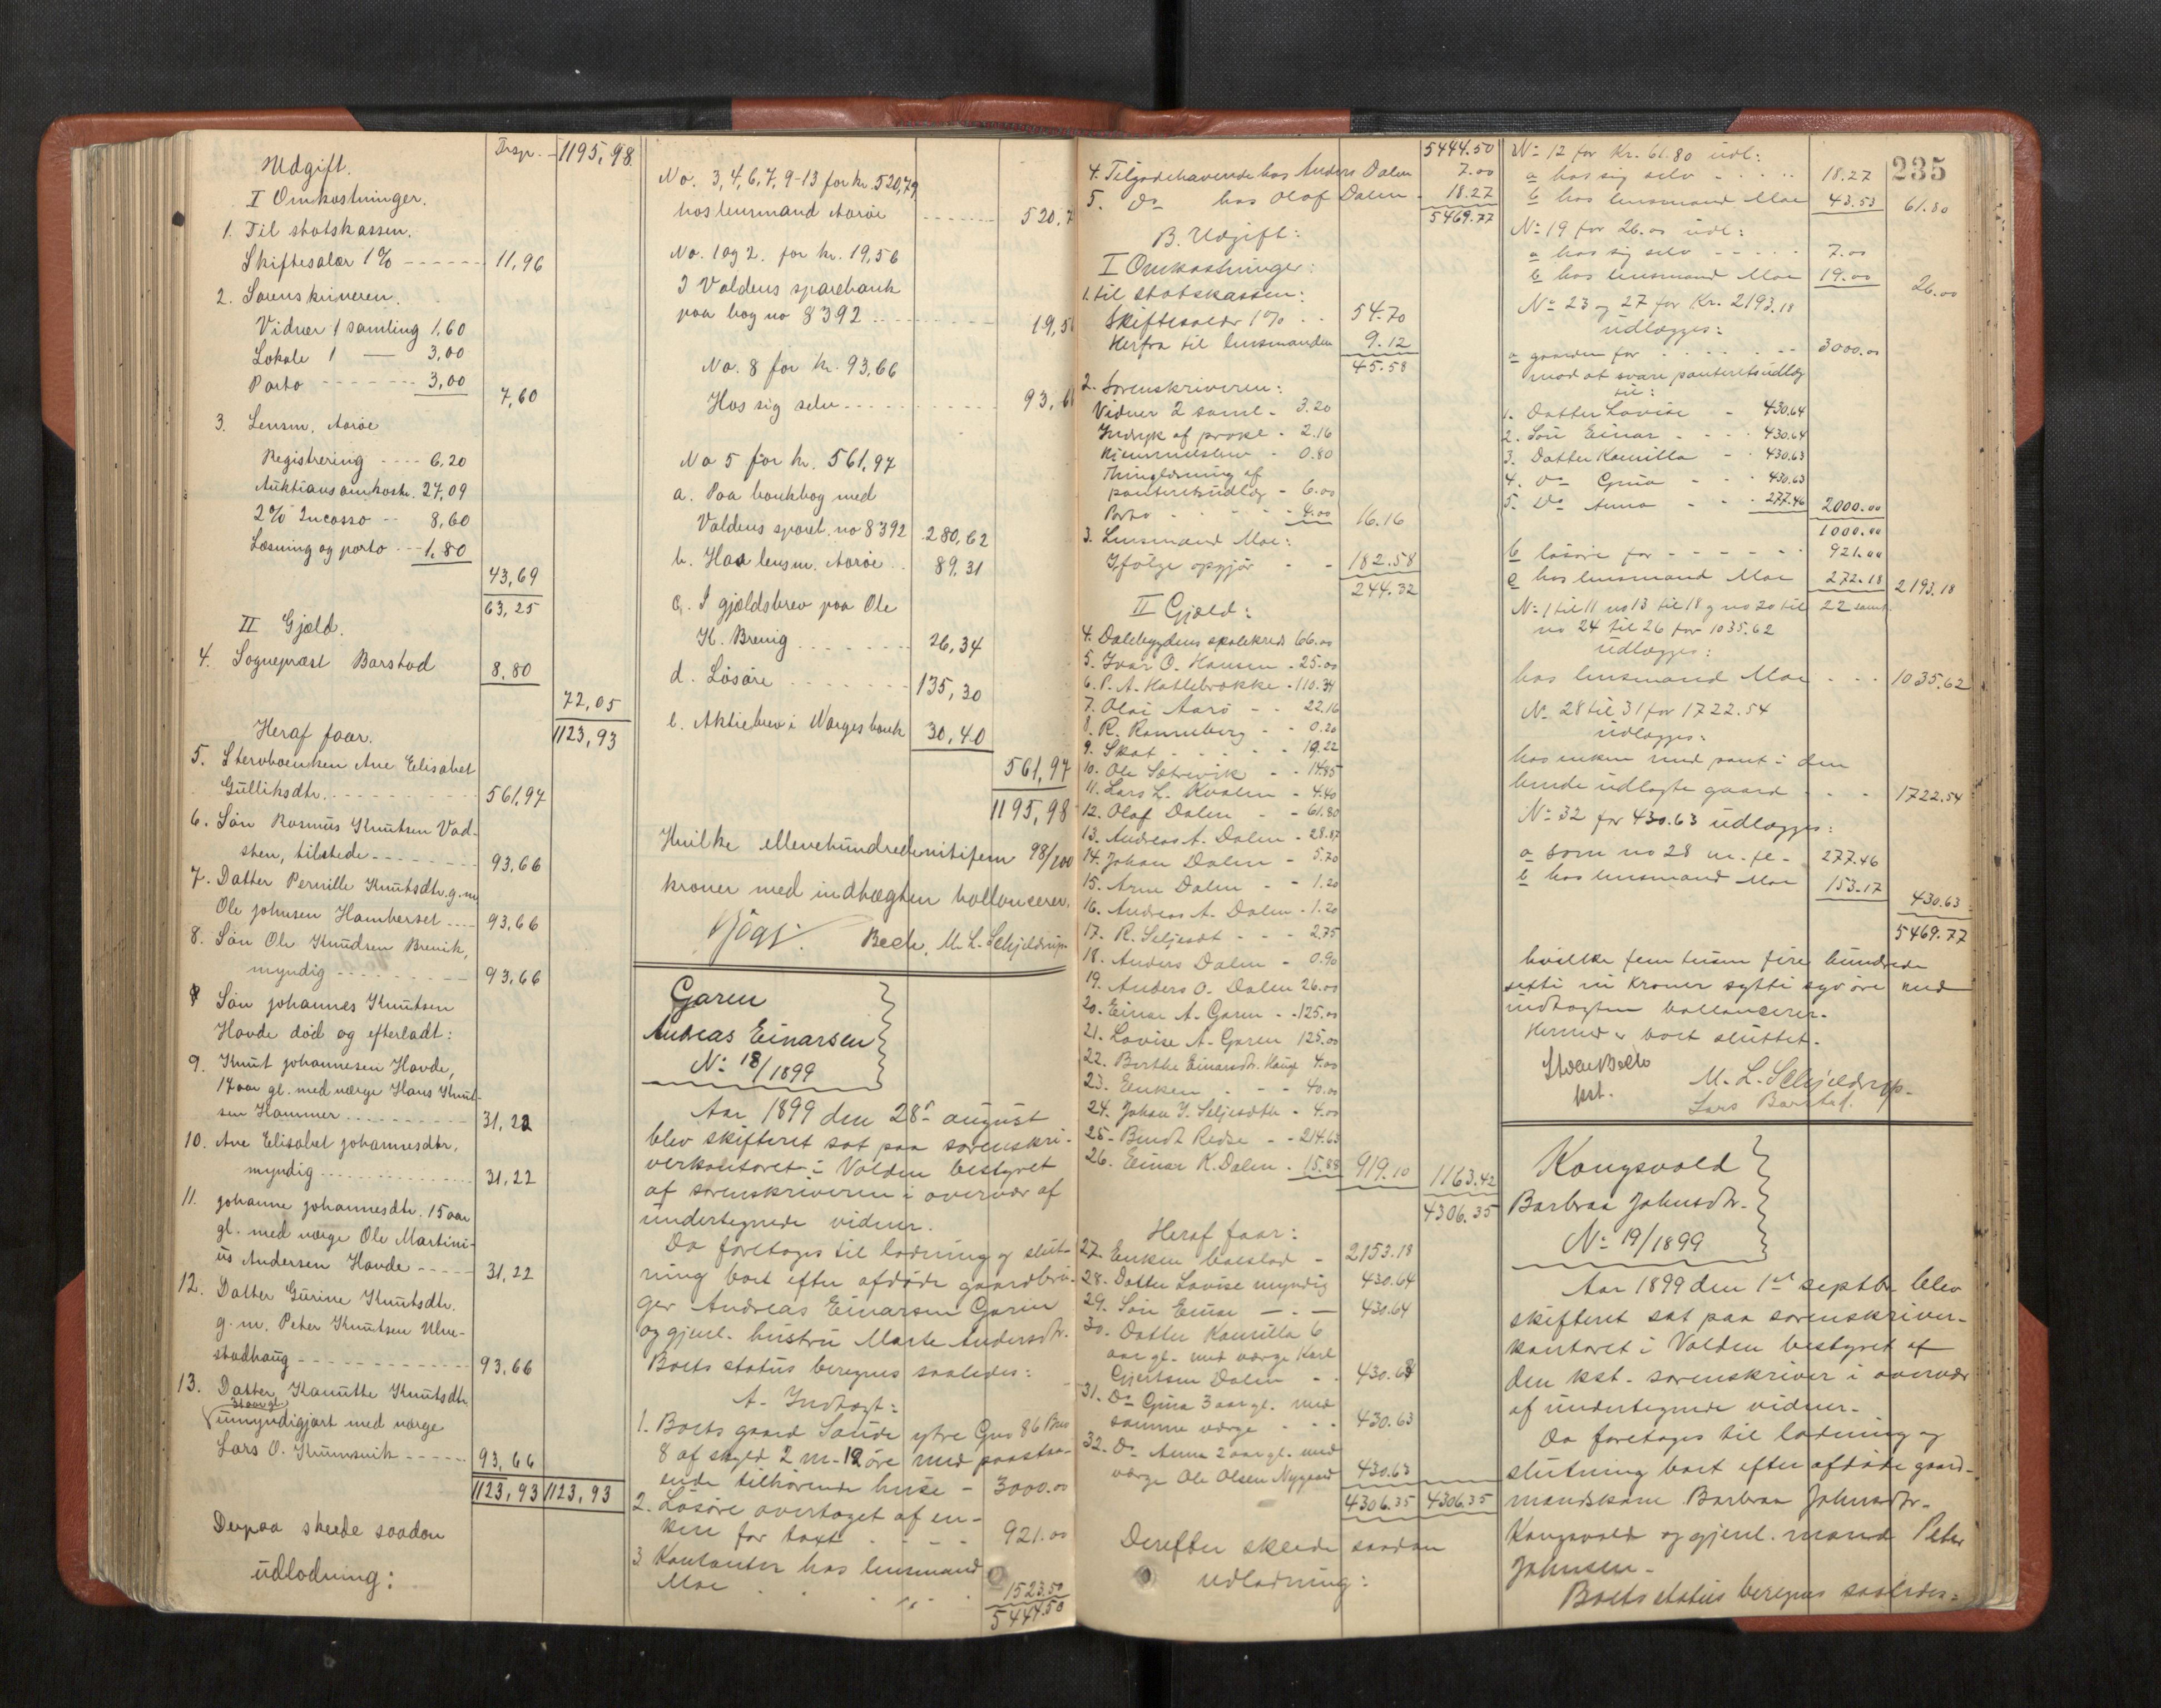 Udgift.
Trspr. - 1195,98
I Omkostninger.
1. Til statskassen.
Skiftesalær 1% ------ 11,96
2. Sorenskriveren.
Vidner 1 samling 1,60
Lokale 1 — 3,00
Porto ------- 3,00
7,60
3. Lensm. Aarøe
Registrering ---- 6,20
Auktionsomkostn. 27,09
2% Incasso -- 8,60
Læsning og porto --- 1,80
43,69
63,25
II Gjæld.
4. Sogneprest Barstad 8,80
72,05
1123,93
Heraf faar.
5. Stervboenken Ane Elisabet
Gulliksdtr. ---------- 561,97
6. Søn Rasmus Knutsen Vad-
sten, tilstede -------- 93,66
7. Datter Pernille Knutsdtr. g. m.
Ole Johnsen Hamberset ---- 93,66
8. Søn Ole Knudsen Brenik,
myndig ---------- 93,66
Søn Johannes Knutsen
Hovde død og efterladt:
9. Knut Johannesen Hovde,
17 aar gl. med værge Hans Knut-
sen Hammer ---------- 31,22
10. Ane Elisabet Johannesdtr,
myndig ------------- 31,22
11. Johanne Johannesdtr. 15 aar
gl. med værge Ole Martini-
us Andersen Hovde ----- 31,22
12. Datter Gurine Knutsdtr.
g. m. Peter Knutsen Ulve-
stadhaug ------------- 93,66
13. Datter Kanutte Knutsdtr
31 aar gl.
umyndigjort med værge
Lars O. Krumsvik ------ 93,66
1123,93 1123,93
Derpaa skeede saadan
udlodning:
No. 3, 4, 6, 7, 9-13 for kr. 520,79
hos lensmand Aarøe -------- 520,7
No. 1 og 2. for kr. 19,56
I Voldens sparebank
paa bog no 8392 ---------- 19,5
No. 8 for kr. 93,66
Hos sig selv ---------- 93,6
No 5 for kr. 561,97
a. Paa bankbog med
Voldens spareb. no 8392 280,62
b. Hos lensm. Aarøe .. 89,31
c. I gjældsbrev paa Ole
K. Brenig -------- 26,34
d. Løsøre -------- 135,30
e. Aktiebrev i Norges bank 30,40
561,97
1195,98
Hvilke ellevehundredenitifem 98/100
kroner med indtægten ballancerer.
Bech. M. L. Schjeldrup
Garen
Andreas Einarsen
No 18/1899
Aar 1899 den 28de august
blev skifteret sat paa sorenskri-
verkontoret i Volden bestyret
af sorenskriveren i overvær af
undertegnede vidner.
Da foretoges til lodning og slut-
ning boet efter afdøde gaardbru-
ger Andreas Einarsen Garen
og gjenl. hustru Marte Andersdtr.
Boets status beregnes saaledes:
A. Indtægt:
1. Boets gaard Saude ytre Gno 86 Bno
8 af skyld 2 m. 12 øre med paastaa-
ende tilhørende huse - 3000.00
2. Løsøre overtaget af en-
ken for taxt . . - - 921.00
3 Kontanter hos lensmand
Moe . . . . 1523.50
5444.50
5444.50
4. Tilgodehavende hos Anders Dalen 7.00
5. Do hos Olaf Dalen . 18.27
5469.77
B. Udgift:
I Omkostninger:
1. til statskassen:
Skiftesalær 1% . . 54.70
Herfra til lensmanden 9.12
45.58
2. Sorenskriveren:
Vidner 2 saml - 3.20
Indryk af prokl - 2.16
Hjemmelsbrev - 0.80
Thinglæsning af
panteretsudlæg - 6.00
Porto - - - - 4.00
16.16
3. Lensmand Moe:
Ifølge opgjør - - 182.58
244.32
II Gjæld:
4. Dalebygdens skolekreds 66.00
5. Ivar O. Hansen - 25.00
6. P. A. Hallebrække - 110.34
7. Olai Aarø - - 22.16
8. R. Ronneberg - - 0.20
9. Skat . . . - - 19.22
10. Ole Sætrevik - - 14.85
11. Lars L. Kvalen - 4.40
12. Olaf Dalen - - 61.80
13. Andreas A. Dalen - 28.87
14. Johan Dalen - 5.70
15. Arne Dalen - - 1.20
16. Andreas A. Dalen - 1.20
17. R. Seljesdt - - - 2.75
18. Anders Dalen - 0.90
19. Anders O. Dalen 26.00
20. Einar A. Garen - - 125.00
21. Lovise A. Garen 125.00
22. Berthe Einarsdtr. Hauge 4.00
23. Enken . - - 40.00
24. Johan J. Seljesdtr - 4.00
25. Bendt Redse - - 214.63
26. Einar K. Dalen . 15.88 919.10 1163.42
4306.35
Heraf faar:
27. Enken boeslod - 2153.18
28. Datter Lovise myndig 430.64
29. Søn Einar — . — 430.64
30. Datter Kamilla 6
aar gl. med værge Karl
Gjertsen Dalen - . 430.63
31. Do Gina 3 aar gl. med
samme værge - - - 430.63
32. Do Anna 2 aar gl. med
værge Ole Olsen Nygaard 430.63
4306.35 4306.35
Derefter skeede saadan
udlodning:
235
No 12 for Kr. 61.80 udl:
a hos sig selv - . . . . 18.27
b hos lensmand Moe 43.53 61.80
No 19 for 26.00 udl:
a hos sig selv - - - - 7.00
b hos lensmand Moe 19.00 26.00
No 23 og 27 for Kr. 2193.18
udlægges:
a gaarden for . . . . - - 3000.00
mod at svare panteretsudlæg
til:
1. Datter Lovise - 430.64
2. Søn Einar - - - 430.64
3. Datter Kamilla - . 430.63
4. Do Gina - - - 430.63
5. Do Anna - - . 277.46 2000.00
1000.00
b løsøre for - - - - - . 921.00
c hos lensmand Moe 272.18 2193.18
No 1 til 11 no 13 til 18 og no 20 til 22 samt
no 24 til 26 for 1035.62
udlægges:
hos lensmand Moe . - . 1035.62
No 28 til 31 for 1722.54
udlægges:
hos enken med pant i den
hende udlagte gaard . - - . 1722.54
No 32 for 430.63 udlægges:
a som no 28 m. fl. - 277.46
b hos lensmand Moe 153.17
430.63
5469.77
hvilke fem tusen fire hundrede
sexti ni kroner sytti syv øre med
indtægten ballancerer.
Hermed er boet sluttet.
kst.
M. L. Schjeldrup.
Lars Barstad.
Kongsvold
Barbraa Johnsdtr.
No 19/1899
Aar 1899 den 1ste septbr. blev
skifteret sat paa sorenskriver-
kontoret i Volden bestyret af
den kst. sorenskriver i overvær
af undertegnede vidner.
Da foretoges til lodning og
slutning boet efter afdøde gaard-
mandskone Barbraa Johnsdtr.
Kongsvold og gjenl. mand Peter
Johnsen.
Boets status beregnes saaledes: